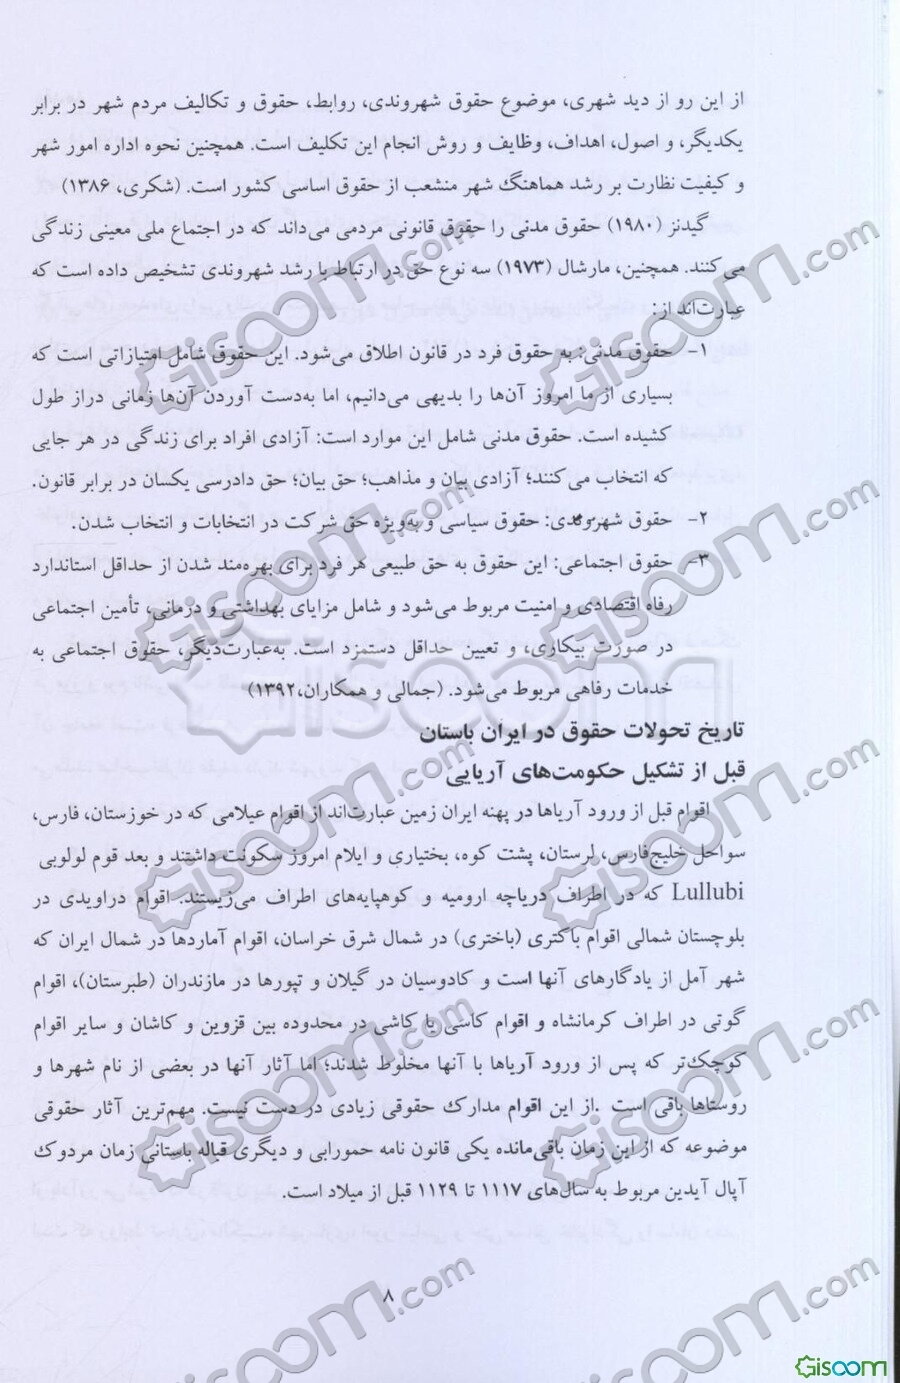 از این رو از دید شهری، موضوع حقوق شهروندی، روابط، حقوق و تکالیف مردم شهر در برابر
یکدیگر، و اصول، اهداف، وظایف و روش انجام این تکلیف است. همچنین نحوه اداره امور شهر
و کیفیت نظارت بر رشد هماهنگ شهر منشعب از حقوق اساسی کشور است. (شکری، ۱۳۸۶)
گیدنز (۱۹۸۰) حقوق مدنی را حقوق قانونی مردمی می‌داند که در اجتماع ملی معینی زندگی
می‌کنند. همچنین، مارشال (۱۹۷۳) سه نوع حق در ارتباط با رشد شهروندی تشخیص داده است که
عبارت‌اند از:
۱- حقوق مدنی: به حقوق فرد در قانون اطلاق می‌شود. این حقوق شامل امتیازاتی است که
بسیاری از ما امروز آن‌ها را بدیهی می‌دانیم، اما به‌دست آوردن آن‌ها زمانی دراز طول
کشیده است. حقوق مدنی شامل این موارد است: آزادی افراد برای زندگی در هر جایی
که انتخاب می کنند؛ آزادی بیان و مذاهب؛ حق بیان؛ حق دادرسی یکسان در برابر قانون.
۲- حقوق شهروندی: حقوق سیاسی و به‌ویژه حق شرکت در انتخابات و انتخاب شدن.
۳- حقوق اجتماعی: این حقوق به حق طبیعی هر فرد برای بهره‌مند شدن از حداقل استاندارد
رفاه اقتصادی و امنیت مربوط می‌شود و شامل مزایای بهداشتی و درمانی، تأمین اجتماعی
در صورت بیکاری، و تعیین حداقل دستمزد است. به‌عبارت‌دیگر، حقوق اجتماعی به
خدمات رفاهی مربوط می‌شود. (جمالی و همکاران،۱۳۹۲)
تاریخ تحولات حقوق در ایران باستان
قبل از تشکیل حکومت‌های آریایی
اقوام قبل از ورود آریاها در پهنه ایران زمین عبارت‌اند از اقوام عیلامی که در خوزستان، فارس،
سواحل خلیج‌فارس، لرستان، پشت کوه، بختیاری و ایلام امروز سکونت داشتند و بعد قوم لولوبی
Lullubi که در اطراف دریاچه ارومیه و کوهپایه‌های اطراف می‌زیستند. اقوام دراویدی در
بلوچستان شمالی اقوام باکتری (باختری) در شمال شرق خراسان، اقوام آماردها در شمال ایران که
شهر آمل از یادگارهای آنها است و کادوسیان در گیلان و تپورها در مازندران (طبرستان)، اقوام
گوتی در اطراف کرمانشاه و اقوام کاسی یا کاشی در محدوده بین قزوین و کاشان و سایر اقوام
کوچک‌تر که پس از ورود آریاها با آنها مخلوط شدند؛ اما آثار آنها در بعضی از نام شهرها و
روستاها باقی است .از این اقوام مدارک حقوقی زیادی در دست نیست. مهم‌ترین آثار حقوقی
موضوعه که از این زمان باقی‌مانده یکی قانون نامه حمورابی و دیگری قباله باستانی زمان مردوک
آپال آیدین مربوط به سال‌های ۱۱۱۷ تا ۱۱۲۹ قبل از میلاد است.
۸
Gisoom